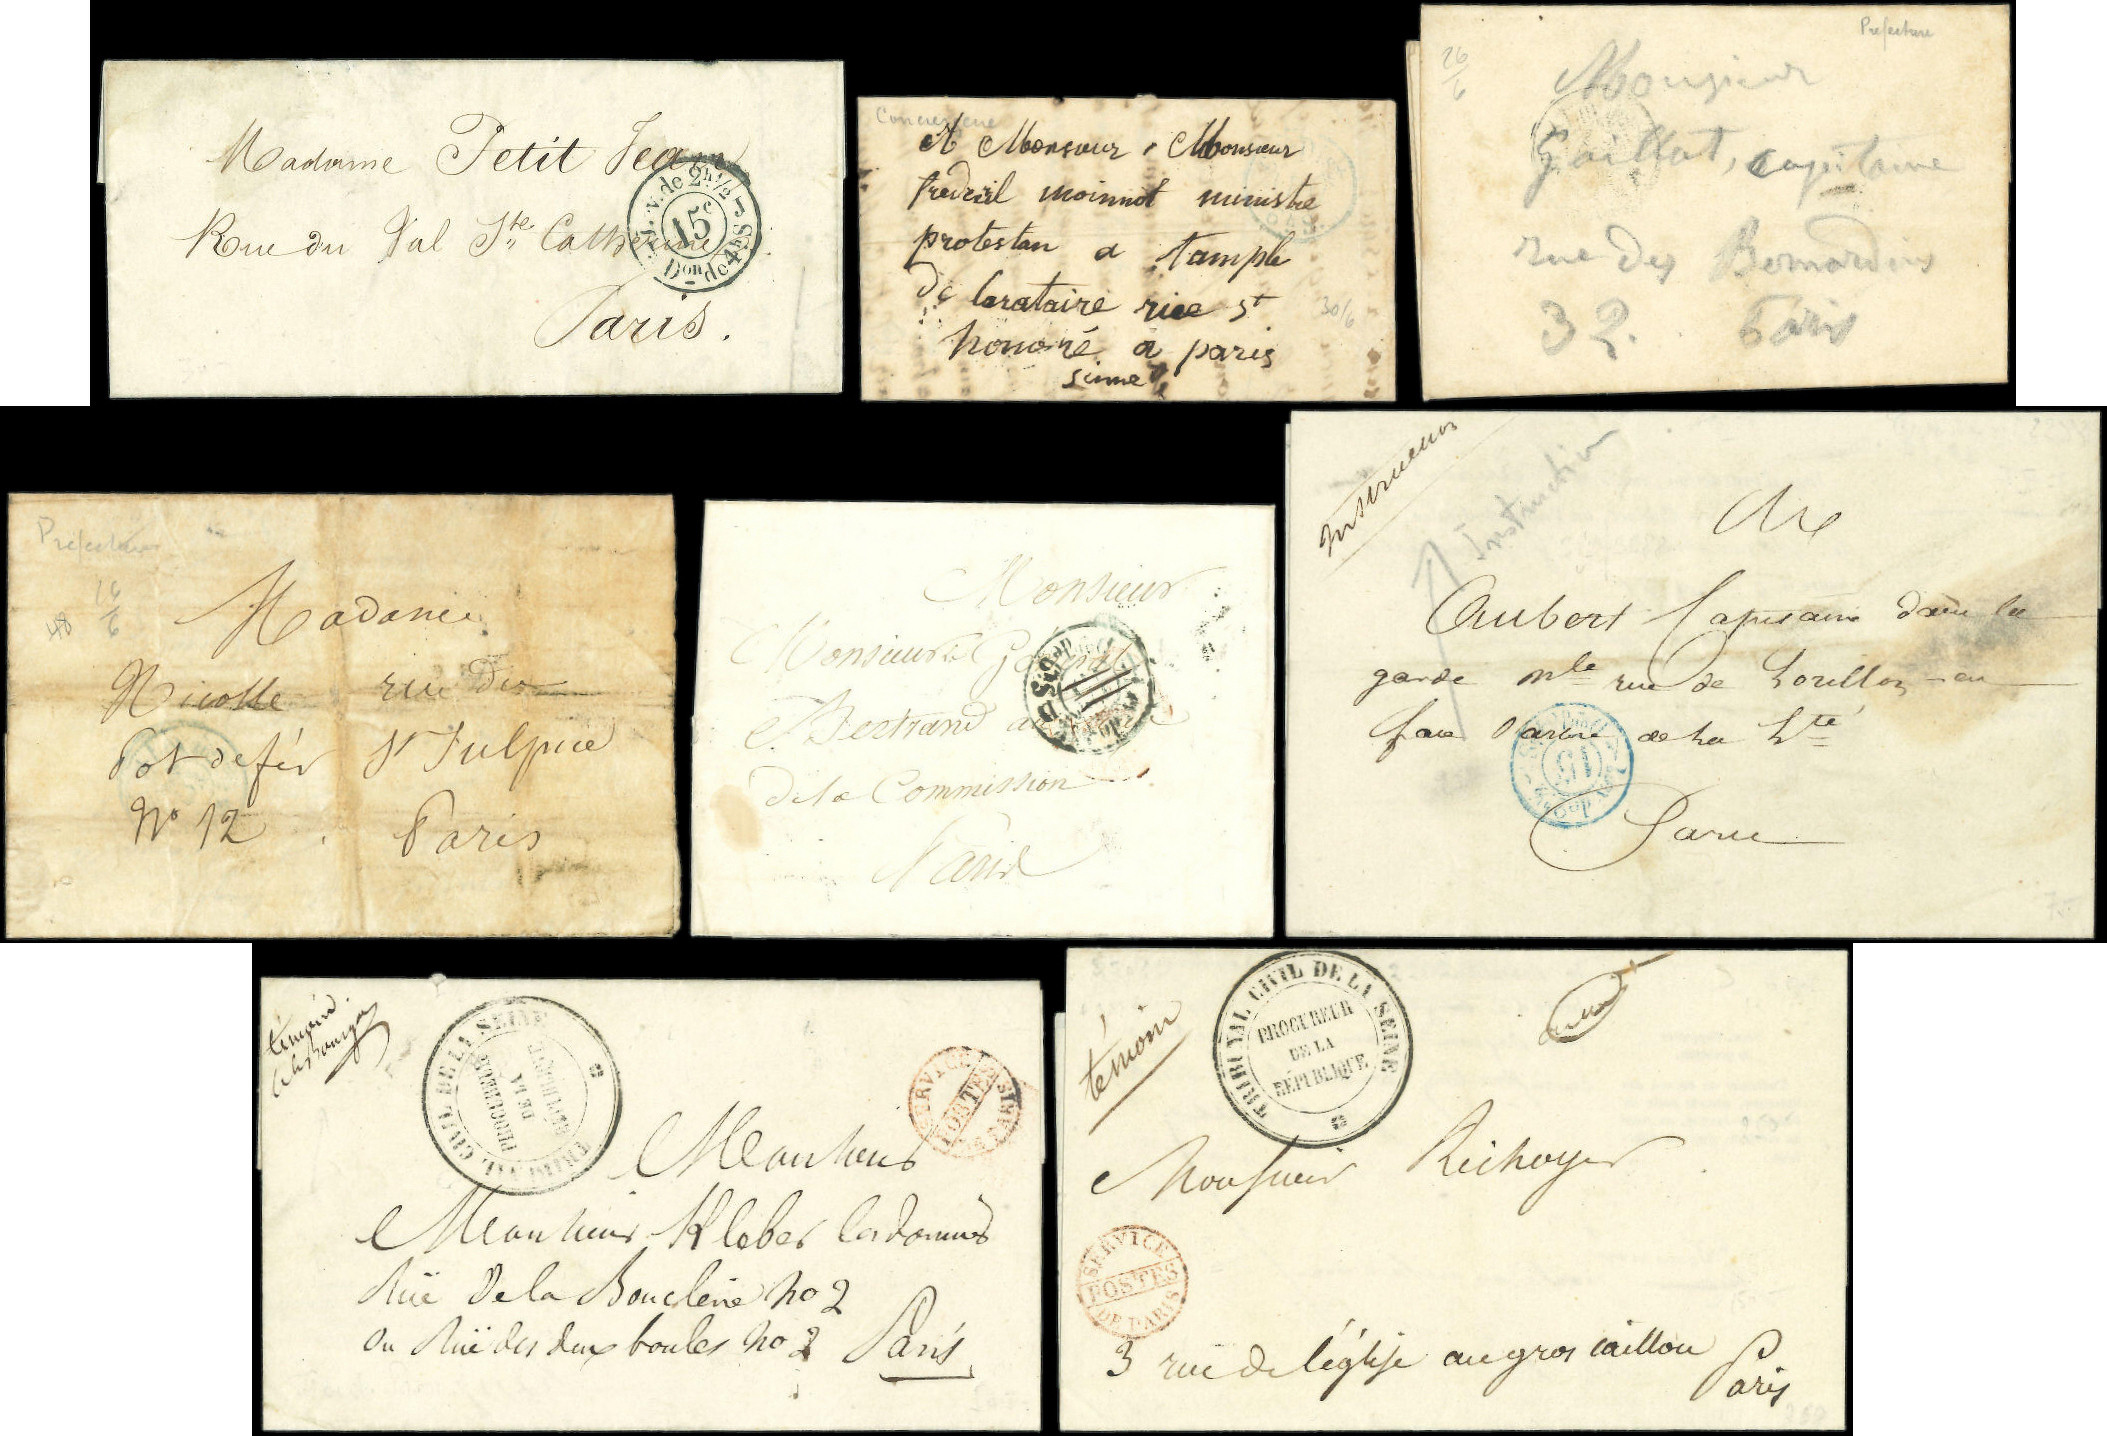 Madame Petit Jean
Rue du Val Ste Catherine
Paris.
15c
A Monsieur Monsieur
moinnot ministre
protestan a tample
de lorataire rue St
honoré a paris
30/6
Prefecture
26/6
Monsieur
Gaillot, capitaine
rue des Bernardins
32. Paris
16/6
Madame
Nicolle rue du
Pot de fér St Sulpice
No 12 Paris
Monsieur
Monsieur le Général
Bertrand
de la Commission
Paris
Instruction
Mr
Aubert Capitaine dans la
garde nle rue de
face
Paris
témoin
TRIBUNAL CIVIL DE LA SEINE
PROCUREUR
DE LA
RÉPUBLIQUE
SERVICE
POSTES
DE PARIS
Monsieur
Monsieur Kleber
Rüe De la Bouclerie no 2
ou Rüe des deux boules no 2 Paris
témoin
TRIBUNAL CIVIL DE LA SEINE
PROCUREUR
DE LA
RÉPUBLIQUE
Monsieur Richoyer
SERVICE
POSTES
DE PARIS
3 rue de l'église au gros caillou
Paris